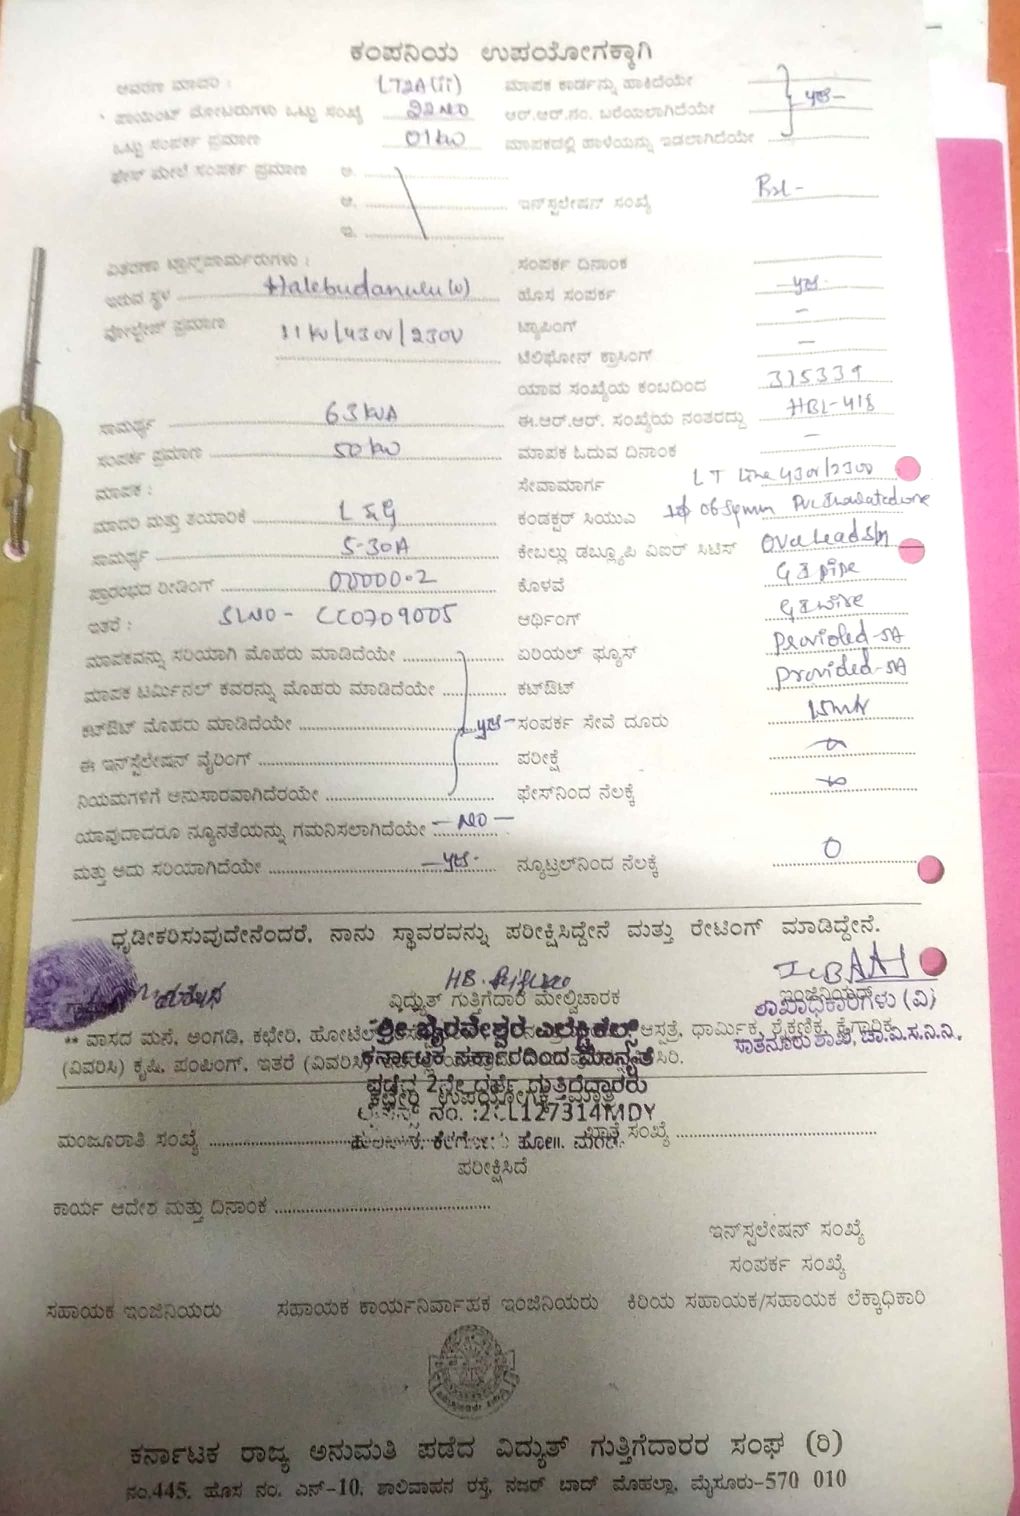 ಕಂಪನಿಯ ಉಪಯೋಗಕ್ಕಾಗಿ
ಆವರಣ ಮಾದರಿ : LT2A(ii) ಮಾಪಕ ಕಾರ್ಡನ್ನು ಹಾಕಿದೆಯೇ
ಪಾಯಿಂಟ್ ಮೋಟರುಗಳು ಒಟ್ಟು ಸಂಖ್ಯೆ 22 NO ಆರ್.ಆರ್.ನಂ. ಬರೆಯಲಾಗಿದೆಯೇ yes-
ಒಟ್ಟು ಸಂಪರ್ಕ ಪ್ರಮಾಣ 01 kw ಮಾಪಕದಲ್ಲಿ ಹಾಳೆಯನ್ನು ಇಡಲಾಗಿದೆಯೇ
ಫೇಸ್ ಮೇಲೆ ಸಂಪರ್ಕ ಪ್ರಮಾಣ ಅ.
ಆ. ಇನ್‌ಸ್ಪಲೇಷನ್ ಸಂಖ್ಯೆ
ಇ.
ವಿತರಣಾ ಟ್ರಾನ್ಸ್‌ಫಾರ್ಮರುಗಳು : ಸಂಪರ್ಕ ದಿನಾಂಕ
ಇರುವ ಸ್ಥಳ Halebudanuru (v) ಹೊಸ ಸಂಪರ್ಕ yes.
ವೋಲ್ಟೇಜ್ ಪ್ರಮಾಣ 11 kv/430v/230v ಟ್ಯಾಪಿಂಗ್ -
ಟೆಲಿಫೋನ್ ಕ್ರಾಸಿಂಗ್ -
ಯಾವ ಸಂಖ್ಯೆಯ ಕಂಬದಿಂದ 315339
ಸಾಮರ್ಥ್ಯ 63 kVA ಈ.ಆರ್.ಆರ್. ಸಂಖ್ಯೆಯ ನಂತರದ್ದು HBL-418
ಸಂಪರ್ಕ ಪ್ರಮಾಣ 50 kw ಮಾಪಕ ಓದುವ ದಿನಾಂಕ -
ಮಾಪಕ : ಸೇವಾಮಾರ್ಗ LT Line 430v/230v
ಮಾದರಿ ಮತ್ತು ತಯಾರಿಕೆ L&G ಕಂಡಕ್ಟರ್ ಸಿಯುಎ 1ф 06 Sqmm PVC Insulated
ಸಾಮರ್ಥ್ಯ 5-30A ಕೇಬಲ್ಲು ಡಬ್ಲ್ಯೂಪಿ ವಿಐರ್ ಸಿಟಿಸ್ Over head
ಪ್ರಾರಂಭದ ರೀಡಿಂಗ್ 00000.2 ಕೊಳವೆ GI pipe
ಇತರೆ : SLNO - CC0709005 ಆರ್ಥಿಂಗ್ GI wire
ಮಾಪಕವನ್ನು ಸರಿಯಾಗಿ ಮೊಹರು ಮಾಡಿದೆಯೇ ಏರಿಯಲ್ ಫ್ಯೂಸ್ Provided-5A
ಮಾಪಕ ಟರ್ಮಿನಲ್ ಕವರನ್ನು ಮೊಹರು ಮಾಡಿದೆಯೇ ಕಟ್‌ಔಟ್ Provided-5A
ಕಟ್‌ಔಟ್ ಮೊಹರು ಮಾಡಿದೆಯೇ yes- ಸಂಪರ್ಕ ಸೇವೆ ದೂರು 15mtr
ಈ ಇನ್‌ಸ್ಪೆಲೇಷನ್ ವೈರಿಂಗ್ ಪರೀಕ್ಷೆ
ನಿಯಮಗಳಿಗೆ ಅನುಸಾರವಾಗಿದೆರಯೇ ಫೇಸ್‌ನಿಂದ ನೆಲಕ್ಕೆ
ಯಾವುದಾದರೂ ನ್ಯೂನತೆಯನ್ನು ಗಮನಿಸಲಾಗಿದೆಯೇ - NO -
ಮತ್ತು ಅದು ಸರಿಯಾಗಿದೆಯೇ - yes. ನ್ಯೂಟ್ರಲ್‌ನಿಂದ ನೆಲಕ್ಕೆ 0
ಧೃಡೀಕರಿಸುವುದೇನೆಂದರೆ, ನಾನು ಸ್ಥಾವರವನ್ನು ಪರೀಕ್ಷಿಸಿದ್ದೇನೆ ಮತ್ತು ರೇಟಿಂಗ್ ಮಾಡಿದ್ದೇನೆ.
ವಿದ್ಯುತ್ ಗುತ್ತಿಗೆದಾರ ಮೇಲ್ವಿಚಾರಕ ಇಂಜಿನಿಯರ್
ಶಾಖಾಧಿಕಾರಿಗಳು (ವಿ)
ಸಾತನೂರು ಶಾಖೆ, ಚಾ.ವಿ.ಸ.ನಿ.ನಿ.
** ವಾಸದ ಮನೆ, ಅಂಗಡಿ, ಕಛೇರಿ, ಹೋಟೆಲ್ ಆಸ್ಪತ್ರೆ, ಧಾರ್ಮಿಕ, ಶೈಕ್ಷಣಿಕ, ಕೈಗಾರಿಕ
(ವಿವರಿಸಿ) ಕೃಷಿ, ಪಂಪಿಂಗ್, ಇತರೆ (ವಿವರಿಸಿ)
ಶ್ರೀ ಭೈರವೇಶ್ವರ ಎಲೆಕ್ಟ್ರಿಕಲ್ಸ್
ಕರ್ನಾಟಕ ಸರ್ಕಾರದಿಂದ ಮಾನ್ಯತೆ
ಪಡೆದ 2ನೇ ದರ್ಜೆ ಗುತ್ತಿಗೆದಾರರು
ಕಛೇರಿ ಉಪಯೋಗಕ್ಕೆ ಮಾತ್ರ
ನಂ. :2CL127314MDY
ಮಂಜೂರಾತಿ ಸಂಖ್ಯೆ ಖಾತೆ ಸಂಖ್ಯೆ
ಪರೀಕ್ಷಿಸಿದೆ
ಕಾರ್ಯ ಆದೇಶ ಮತ್ತು ದಿನಾಂಕ
ಇನ್‌ಸ್ಪಲೇಷನ್ ಸಂಖ್ಯೆ
ಸಂಪರ್ಕ ಸಂಖ್ಯೆ
ಸಹಾಯಕ ಇಂಜಿನಿಯರು ಸಹಾಯಕ ಕಾರ್ಯನಿರ್ವಾಹಕ ಇಂಜಿನಿಯರು ಕಿರಿಯ ಸಹಾಯಕ/ಸಹಾಯಕ ಲೆಕ್ಕಾಧಿಕಾರಿ
ಕರ್ನಾಟಕ ರಾಜ್ಯ ಅನುಮತಿ ಪಡೆದ ವಿದ್ಯುತ್ ಗುತ್ತಿಗೆದಾರರ ಸಂಘ (ರಿ)
ನಂ.445, ಹೊಸ ನಂ. ಎನ್-10, ಶಾಲಿವಾಹನ ರಸ್ತೆ, ನಜರ್ ಬಾದ್ ಮೊಹಲ್ಲಾ, ಮೈಸೂರು-570 010